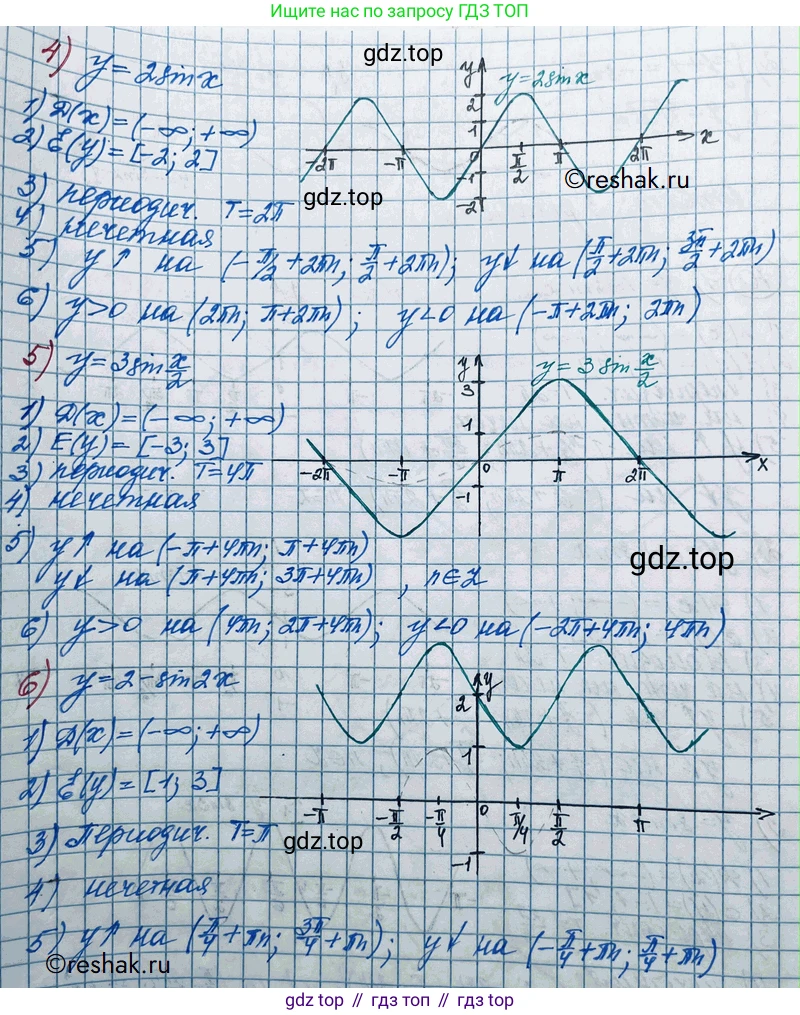 Ищите нас по запросу ГДЗ ТОП
4) y = 2sin x
gdz.top
1) D(x) = (-∞; +∞)
2) E(y) = [-2; 2]
3) периодич. T = 2π
4) нечетная
5) y↑ на (-π/2 + 2πn; π/2 + 2πn); y↓ на (π/2 + 2πn; 3π/2 + 2πn)
6) y>0 на (2πn; π+2πn); y<0 на (-π+2πn; 2πn)
y
y = 2sin x
2
1
-2π -π 0 π/2 π 2π x
-1
-2
gdz.top
©reshak.ru
5) y = 3sin x/2
1) D(x) = (-∞; +∞)
2) E(y) = [-3; 3]
3) периодич. T = 4π
4) нечетная
5) y↑ на (-π+4πn; π+4πn)
y↓ на (π+4πn; 3π+4πn), n∈Z
6) y>0 на (4πn; 2π+4πn); y<0 на (-2π+4πn; 4πn)
y
y = 3 sin x/2
3
1
-2π -π 0 π 2π x
-1
gdz.top
6) y = 2 - sin 2x
1) D(x) = (-∞; +∞)
2) E(y) = [1; 3]
3) Периодич. T = π
4) нечетная
5) y↑ на (π/4 + πn; 3π/4 + πn); y↓ на (-π/4 + πn; π/4 + πn)
y
2
1
-π -π/2 -π/4 0 π/4 π/2 π
-1
gdz.top
©reshak.ru
gdz.top // гдз топ // gdz.top